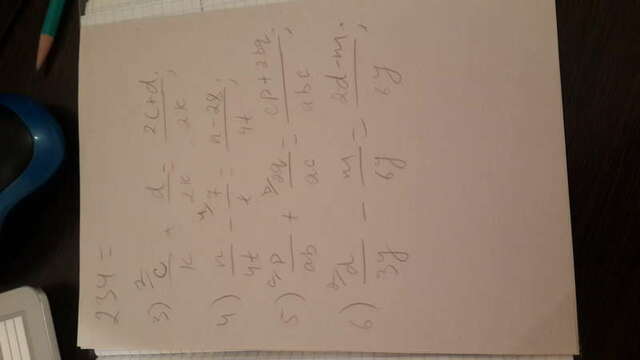 234 =
3) ²⁄ c/k + d/2k = 2c+d/2k;
4) n/4t - ⁴⁄ 7/t = n-28/4t;
5) ᶜ⁄ p/ab + ᵇ⁄ 2q/ac = cp+2bq/abc;
6) ²⁄ d/3y - m/6y = 2d-m/6y;